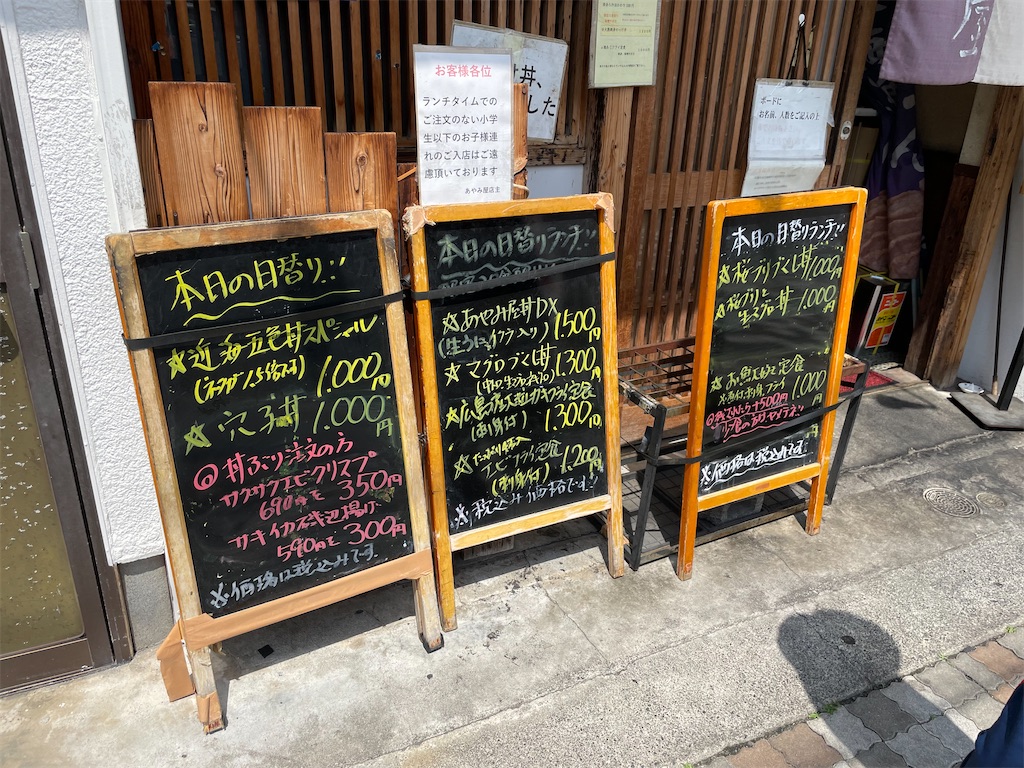 お客様各位
ランチタイムでの
ご注文のない小学
生以下のお子様連
れのご入店はご遠
慮頂いております
あやみ屋店主
ボードに
お名前、人数をご記入の上
屋
本日の日替り!!
☆近海五色丼スペシャル
(ネタが1.5倍です)
1.000円
☆穴子丼 1.000円
◎丼ぶり注文の方
サクサクエビクリスプ
690円を350円
サキイカ磯辺揚げ
590円を300円
※価格は税込みです.
本日の日替りランチ!!
☆あやみ屋丼DX
(生うに、イクラ入り) 1.500円
☆マグロづくし丼
1.300円
☆広島産大型カキフライ定食
(刺身付) 1.300円
エビフライ定食
(刺身付) 1.200円
※税込み価格です!!
本日の日替りランチ!!
☆桜ブリづくし丼 1,000円
☆桜ブリと
生エビ丼 1.000円
定食
1.000円
500円
※価格は税込みです.